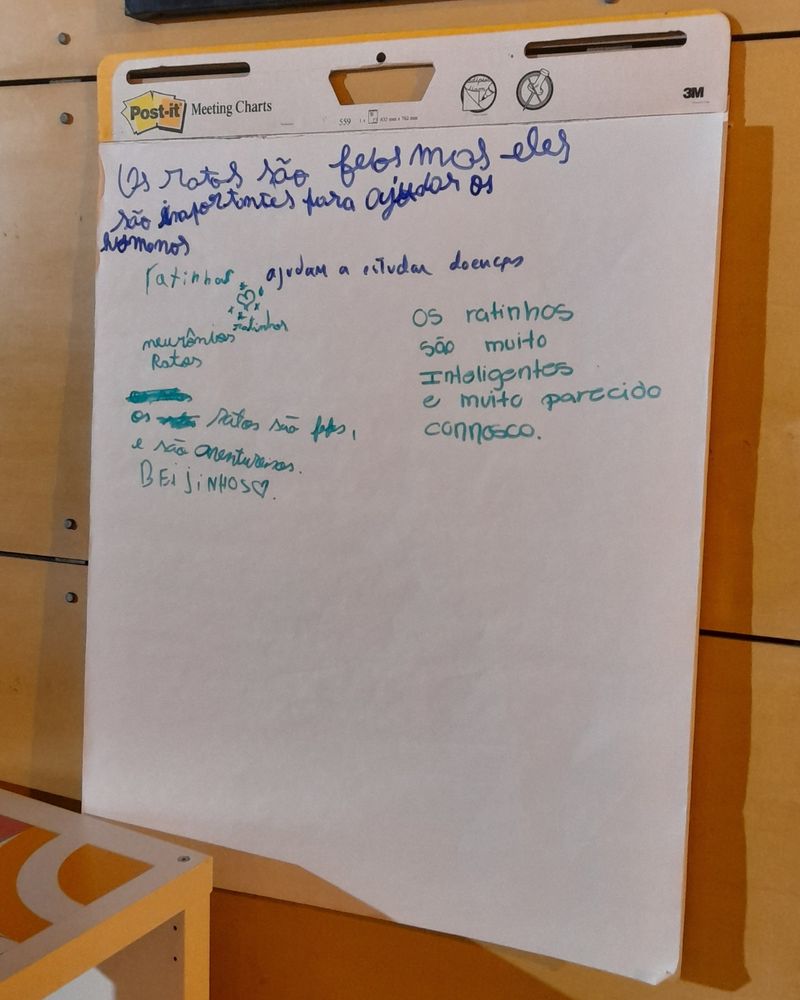 Post-it Meeting Charts
559
3M
Os ratos são feios mas eles
são importantes para ajudar os
humanos
ratinhos ajudam a estudar doenças
ratinhos
neurônios
Ratos
os ratos são fofos,
e são aventureiros.
BEijiNHOS♡.
Os ratinhos
são muito
Inteligentes
e muito parecido
connosco.